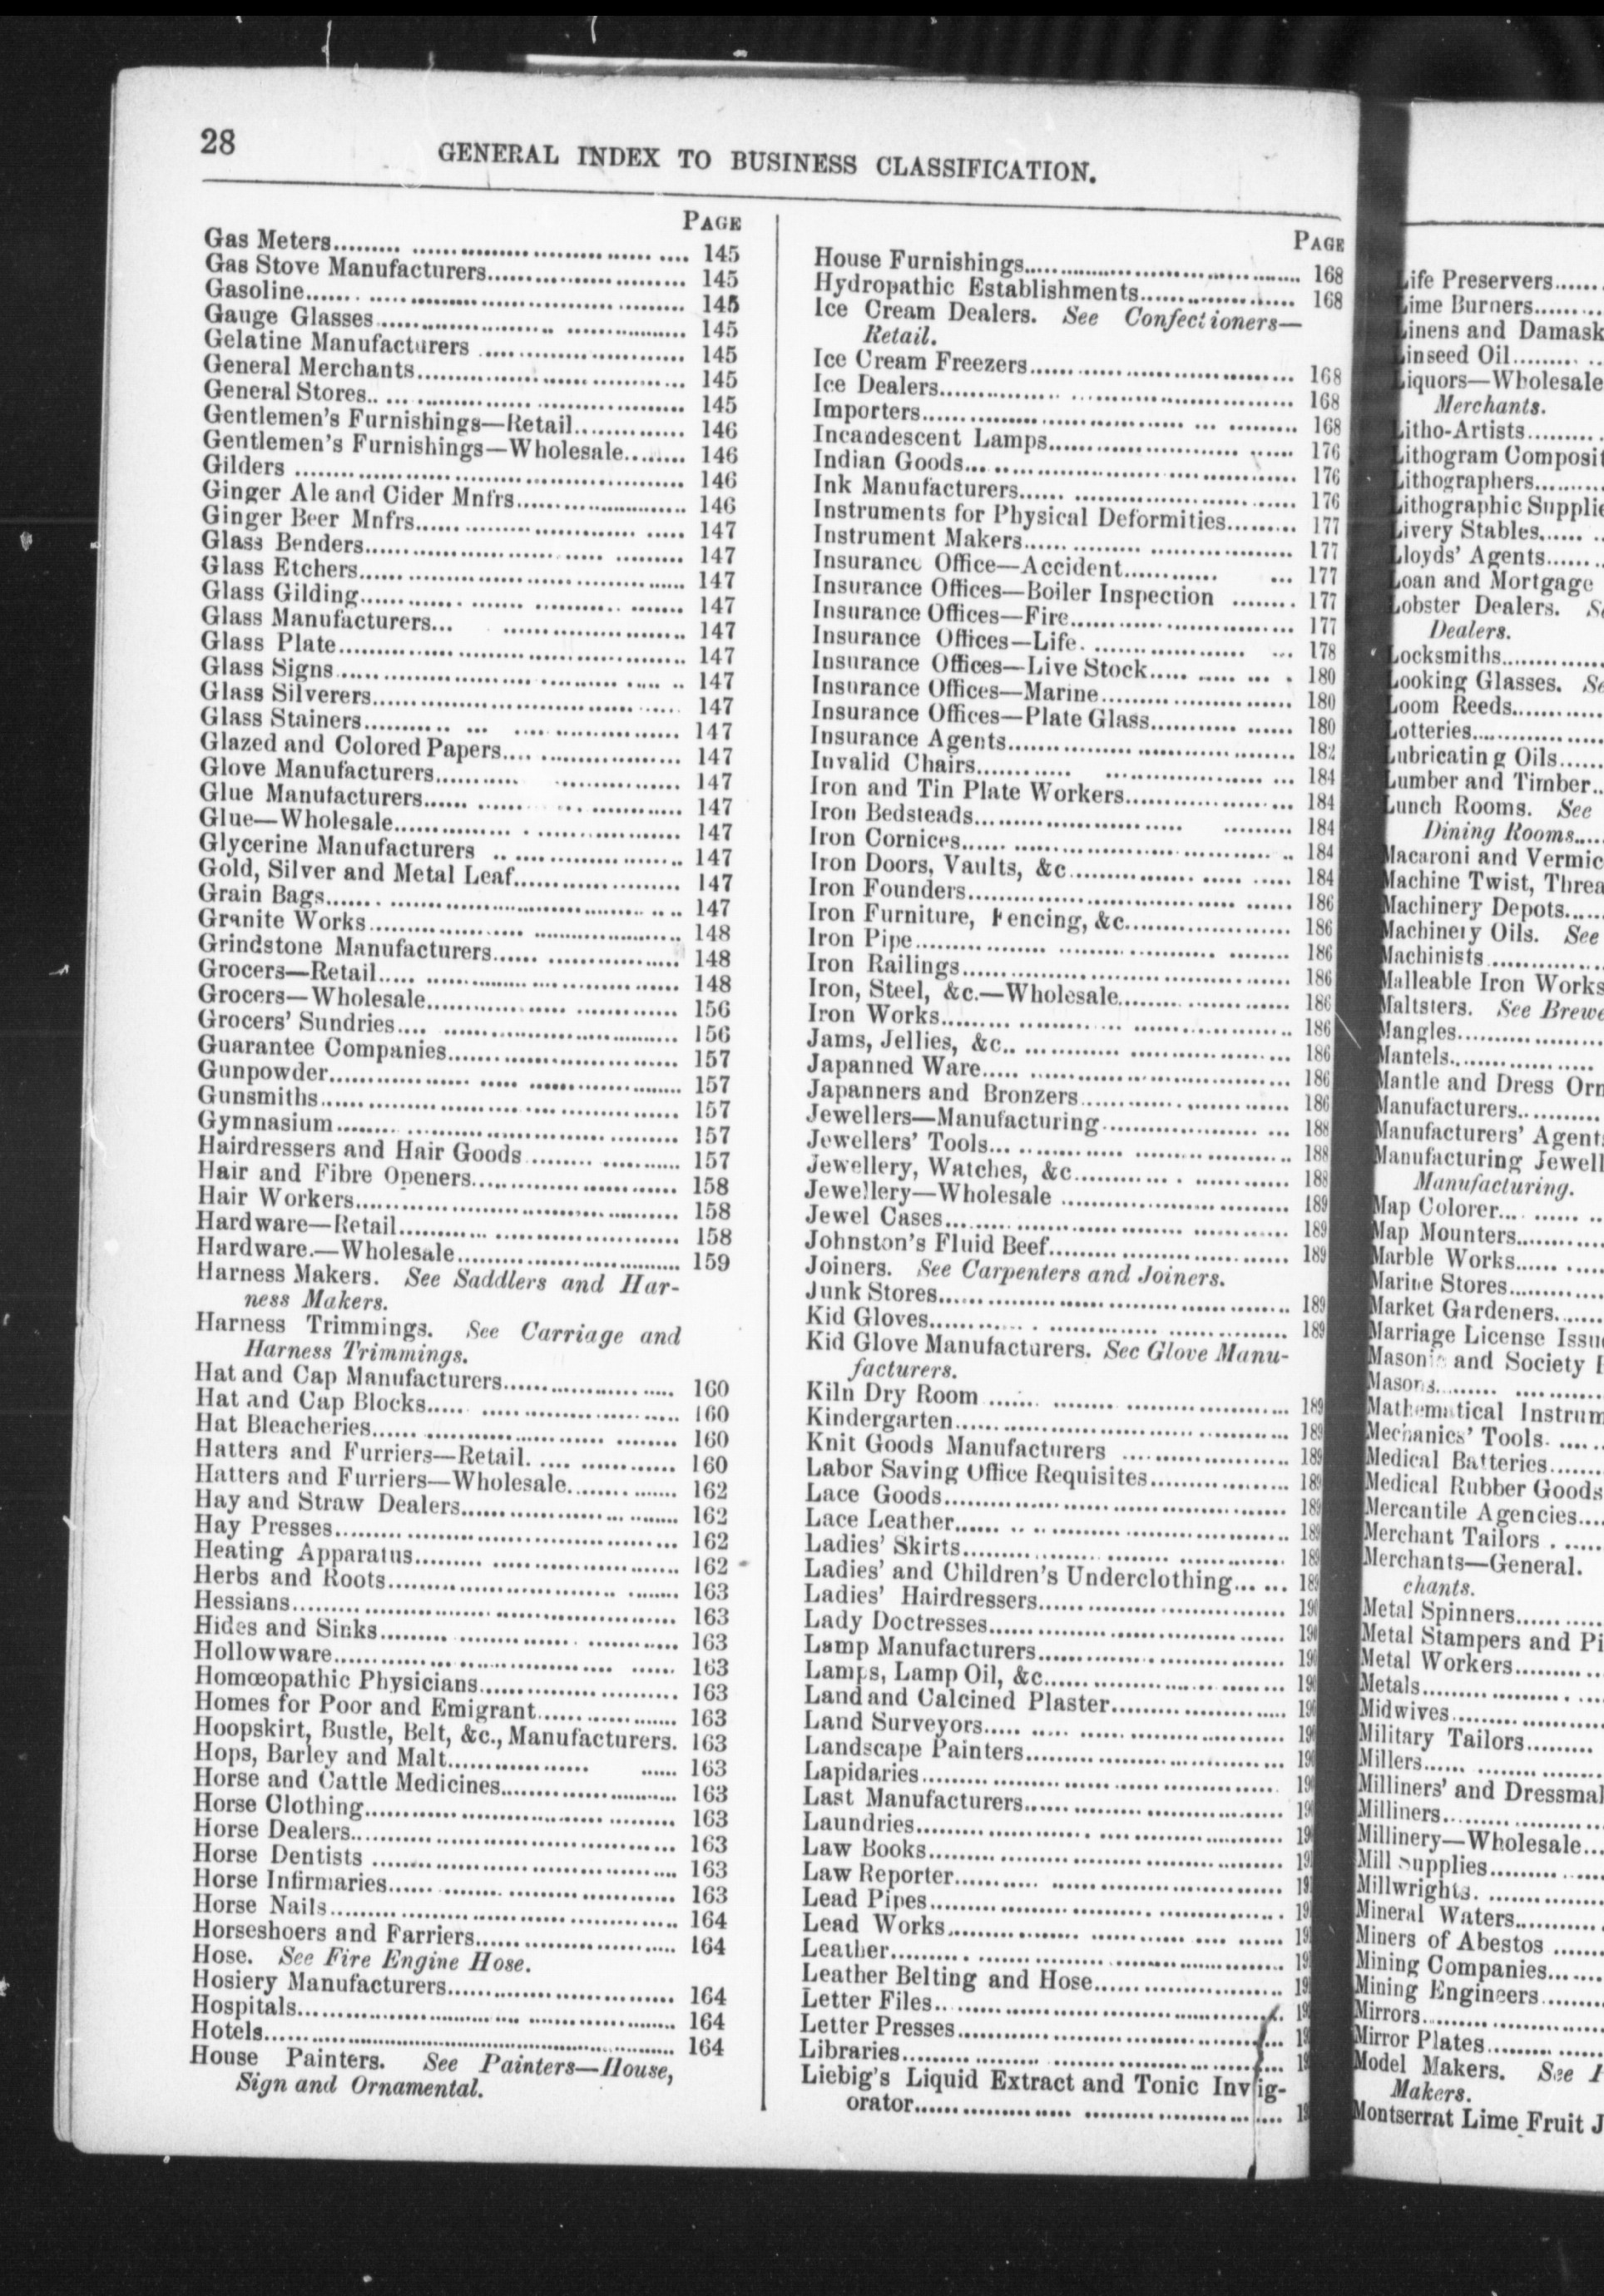 28
GENERAL INDEX TO BUSINESS CLASSIFICATION.
PAGE
Gas Meters........ 145
Gas Stove Manufacturers........ 145
Gasoline........ 145
Gauge Glasses........ 145
Gelatine Manufacturers........ 145
General Merchants........ 145
General Stores........ 145
Gentlemen's Furnishings—Retail........ 146
Gentlemen's Furnishings—Wholesale........ 146
Gilders........ 146
Ginger Ale and Cider Mnfrs........ 146
Ginger Beer Mnfrs........ 147
Glass Benders........ 147
Glass Etchers........ 147
Glass Gilding........ 147
Glass Manufacturers........ 147
Glass Plate........ 147
Glass Signs........ 147
Glass Silverers........ 147
Glass Stainers........ 147
Glazed and Colored Papers........ 147
Glove Manufacturers........ 147
Glue Manufacturers........ 147
Glue—Wholesale........ 147
Glycerine Manufacturers........ 147
Gold, Silver and Metal Leaf........ 147
Grain Bags........ 147
Granite Works........ 148
Grindstone Manufacturers........ 148
Grocers—Retail........ 148
Grocers—Wholesale........ 156
Grocers' Sundries........ 156
Guarantee Companies........ 157
Gunpowder........ 157
Gunsmiths........ 157
Gymnasium........ 157
Hairdressers and Hair Goods........ 157
Hair and Fibre Openers........ 158
Hair Workers........ 158
Hardware—Retail........ 158
Hardware.—Wholesale........ 159
Harness Makers. See Saddlers and Har-
ness Makers.
Harness Trimmings. See Carriage and
Harness Trimmings.
Hat and Cap Manufacturers........ 160
Hat and Cap Blocks........ 160
Hat Bleacheries........ 160
Hatters and Furriers—Retail........ 160
Hatters and Furriers—Wholesale........ 162
Hay and Straw Dealers........ 162
Hay Presses........ 162
Heating Apparatus........ 162
Herbs and Roots........ 163
Hessians........ 163
Hides and Sinks........ 163
Hollowware........ 163
Homœopathic Physicians........ 163
Homes for Poor and Emigrant........ 163
Hoopskirt, Bustle, Belt, &c., Manufacturers. 163
Hops, Barley and Malt........ 163
Horse and Cattle Medicines........ 163
Horse Clothing........ 163
Horse Dealers........ 163
Horse Dentists........ 163
Horse Infirmaries........ 163
Horse Nails........ 164
Horseshoers and Farriers........ 164
Hose. See Fire Engine Hose.
Hosiery Manufacturers........ 164
Hospitals........ 164
Hotels........ 164
House Painters. See Painters—House,
Sign and Ornamental.
PAGE
House Furnishings........ 168
Hydropathic Establishments........ 168
Ice Cream Dealers. See Confectioners—
Retail.
Ice Cream Freezers........ 168
Ice Dealers........ 168
Importers........ 168
Incandescent Lamps........ 176
Indian Goods........ 176
Ink Manufacturers........ 176
Instruments for Physical Deformities........ 177
Instrument Makers........ 177
Insurance Office—Accident........ 177
Insurance Offices—Boiler Inspection........ 177
Insurance Offices—Fire........ 177
Insurance Offices—Life........ 178
Insurance Offices—Live Stock........ 180
Insurance Offices—Marine........ 180
Insurance Offices—Plate Glass........ 180
Insurance Agents........ 182
Invalid Chairs........ 184
Iron and Tin Plate Workers........ 184
Iron Bedsteads........ 184
Iron Cornices........ 184
Iron Doors, Vaults, &c........ 184
Iron Founders........ 186
Iron Furniture, Fencing, &c........ 186
Iron Pipe........ 186
Iron Railings........ 186
Iron, Steel, &c.—Wholesale........ 186
Iron Works........ 186
Jams, Jellies, &c........ 186
Japanned Ware........ 186
Japanners and Bronzers........ 186
Jewellers—Manufacturing........ 188
Jewellers' Tools........ 188
Jewellery, Watches, &c........ 188
Jewellery—Wholesale........ 189
Jewel Cases........ 189
Johnston's Fluid Beef........ 189
Joiners. See Carpenters and Joiners.
Junk Stores........ 189
Kid Gloves........ 189
Kid Glove Manufacturers. See Glove Manu-
facturers.
Kiln Dry Room........ 189
Kindergarten........ 189
Knit Goods Manufacturers........ 189
Labor Saving Office Requisites........ 189
Lace Goods........ 189
Lace Leather........ 189
Ladies' Skirts........ 189
Ladies' and Children's Underclothing........ 189
Ladies' Hairdressers........
Lady Doctresses........
Lamp Manufacturers........
Lamps, Lamp Oil, &c........
Land and Calcined Plaster........
Land Surveyors........
Landscape Painters........
Lapidaries........
Last Manufacturers........
Laundries........
Law Books........
Law Reporter........
Lead Pipes........
Lead Works........
Leather........
Leather Belting and Hose........
Letter Files........
Letter Presses........
Libraries........
Liebig's Liquid Extract and Tonic Invig-
orator........
Life Preservers......
Lime Burners......
Linens and Damask
Linseed Oil......
Liquors—Wholesale
Merchants.
Litho-Artists......
Lithogram Composit
Lithographers......
Lithographic Supplie
Livery Stables......
Lloyds' Agents......
Loan and Mortgage
Lobster Dealers.
Dealers.
Locksmiths......
Looking Glasses.
Loom Reeds......
Lotteries......
Lubricating Oils......
Lumber and Timber..
Lunch Rooms. See
Dining Rooms.....
Macaroni and Vermic
Machine Twist, Threa
Machinery Depots......
Machinery Oils. See
Machinists......
Malleable Iron Works
Maltsters. See Brewe
Mangles......
Mantels......
Mantle and Dress Orn
Manufacturers......
Manufacturers' Agents
Manufacturing Jewell
Manufacturing.
Map Colorer......
Map Mounters......
Marble Works......
Marine Stores......
Market Gardeners......
Marriage License Issu
Masonic and Society
Masons......
Mathematical Instrum
Mechanics' Tools......
Medical Batteries......
Medical Rubber Goods
Mercantile Agencies....
Merchant Tailors......
Merchants—General.
chants.
Metal Spinners......
Metal Stampers and Pi
Metal Workers......
Metals......
Midwives......
Military Tailors......
Millers......
Milliners' and Dressmal
Milliners......
Millinery—Wholesale...
Mill Supplies......
Millwrights......
Mineral Waters......
Miners of Abestos......
Mining Companies......
Mining Engineers......
Mirrors......
Mirror Plates......
Model Makers. See
Makers.
Montserrat Lime Fruit J